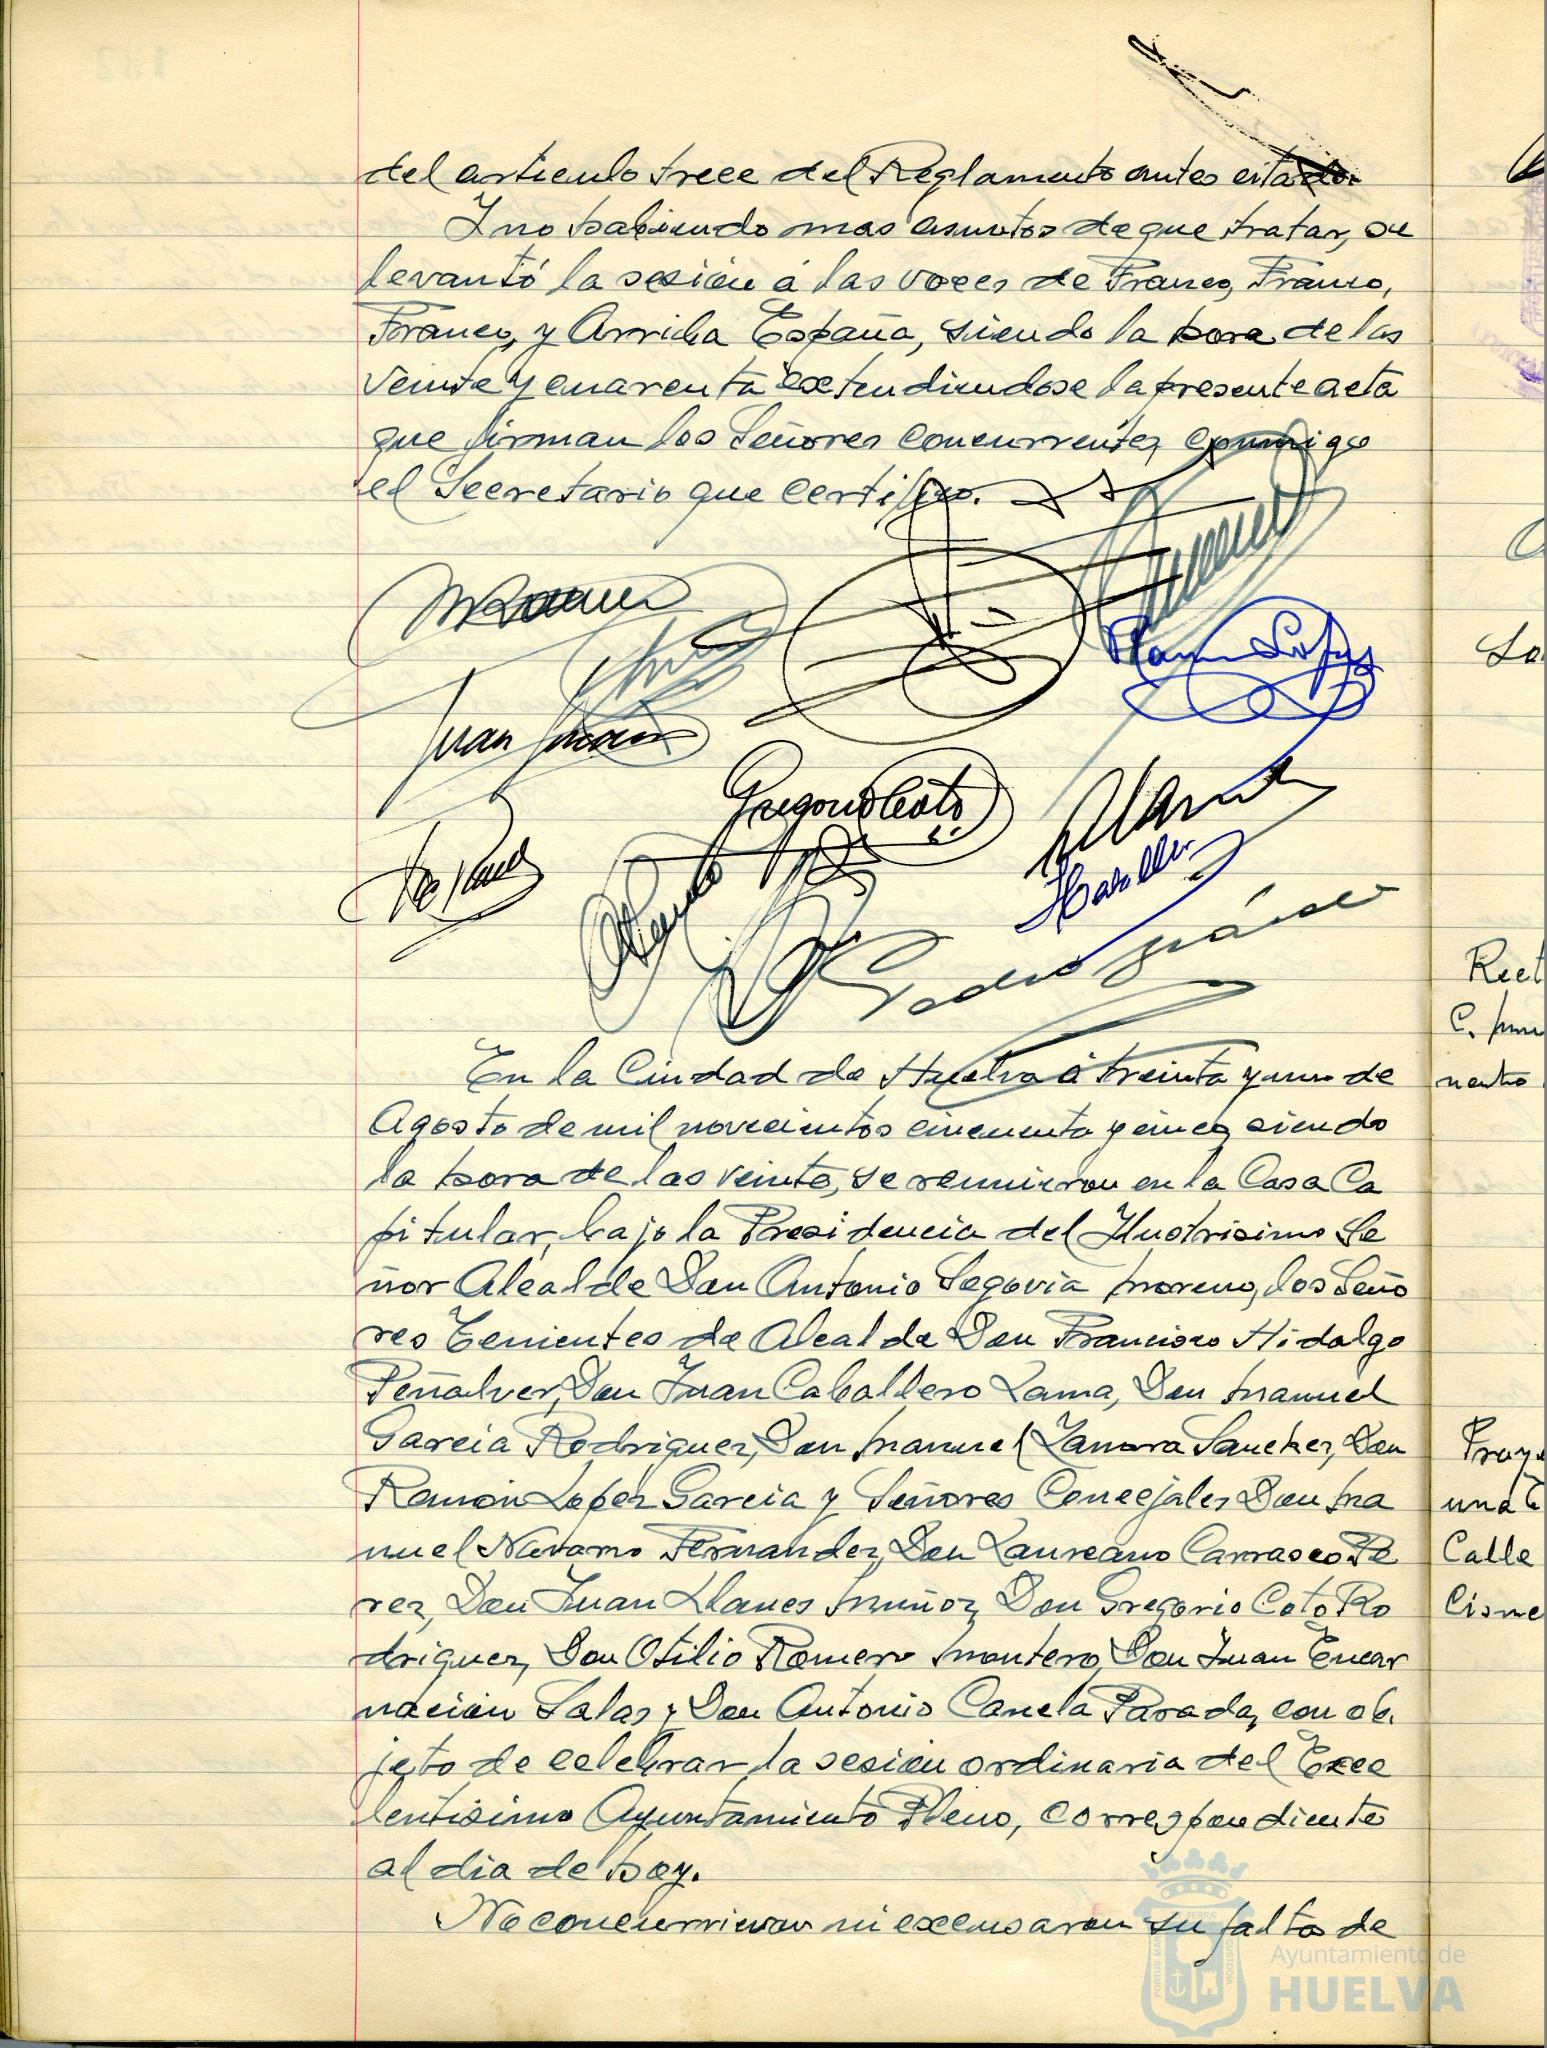 del articulo trece del Reglamento antes citado.
Y no habiendo mas asuntos de que tratar, se
levantó la sesión á las voces de Franco, Franco,
Franco, y Arriba España, siendo la hora de las
veinte y cuarenta extendiendose la presente acta
que firman los Señores concurrentes, conmigo
el Secretario que certifico.
Ramon Lopez
Juan
Gregorio Coto
Pedro
En la Ciudad de Huelva á treinta y uno de
Agosto de mil novecientos cincuenta y cinco, siendo
la hora de las veinte, se reunieron en la Casa Ca
pitular, bajo la Presidencia del Ilustrisimo Se
ñor Alcalde Don Antonio Segovia Moreno, los Seño
res Tenientes de Alcalde Don Francisco Hidalgo
Peñalver, Don Juan Caballero Lama, Don Manuel
Garcia Rodriguez, Don Manuel Zamora Sanchez, Don
Ramón Lopez Garcia y Señores Concejales Don Ma
nuel Navarro Fernandez, Don Laureano Carrasco Pe
rez, Don Juan Llanes Muñoz, Don Gregorio Coto Ro
driguez, Don Otilio Romero Montero, Don Juan Encar
nación Salas y Don Antonio Canela Parada, con ob.
jeto de celebrar la sesión ordinaria del Exce
lentisimo Ayuntamiento Pleno, correspondiente
al dia de hoy.
No concurrieron ni excusaron su falta de
Rect
C.
Proye
una C
Calle
Cisne
Ayuntamiento de
HUELVA